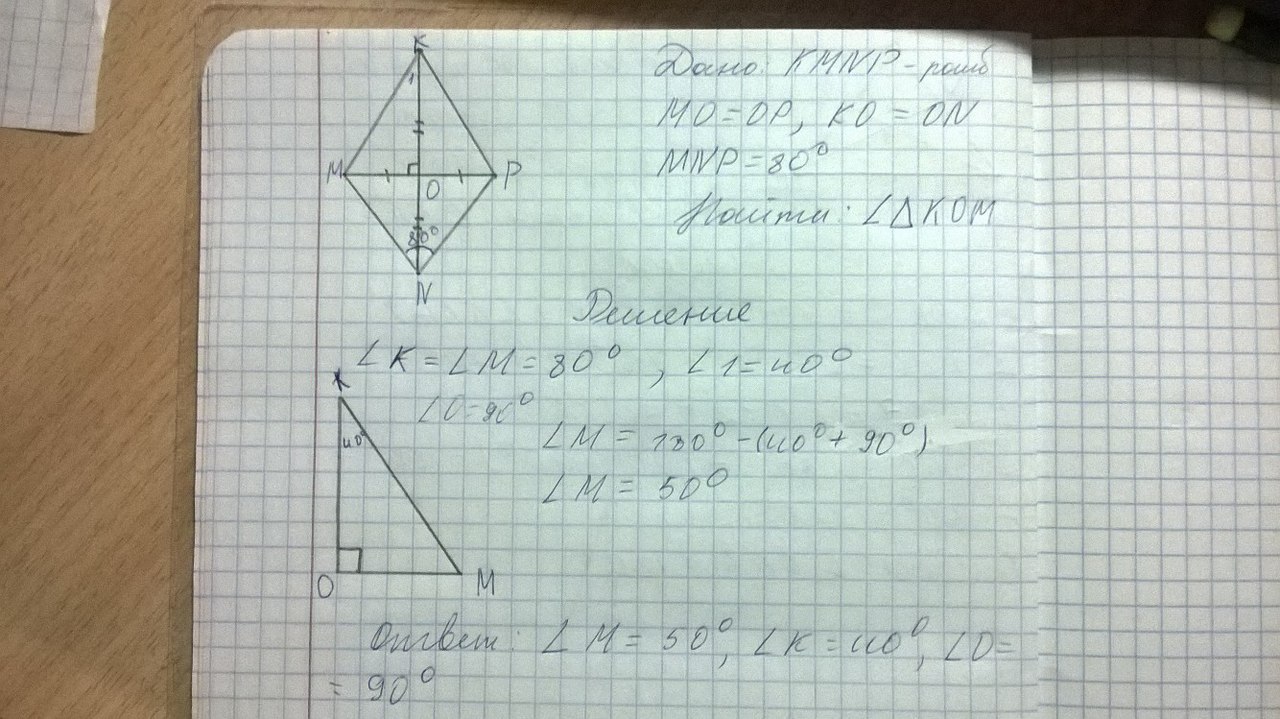 K
1
M
O
P
80°
N
Дано: KMNP - ромб
MO = OP, KO = ON
MNP = 80°
Найти: ∠ΔKOM
Решение
∠K = ∠M = 80°, ∠1 = 40°
∠O = 90°
K
40°
∠M = 180° - (40° + 90°)
∠M = 50°
O
M
Ответ: ∠M = 50°, ∠K = 40°, ∠O =
= 90°